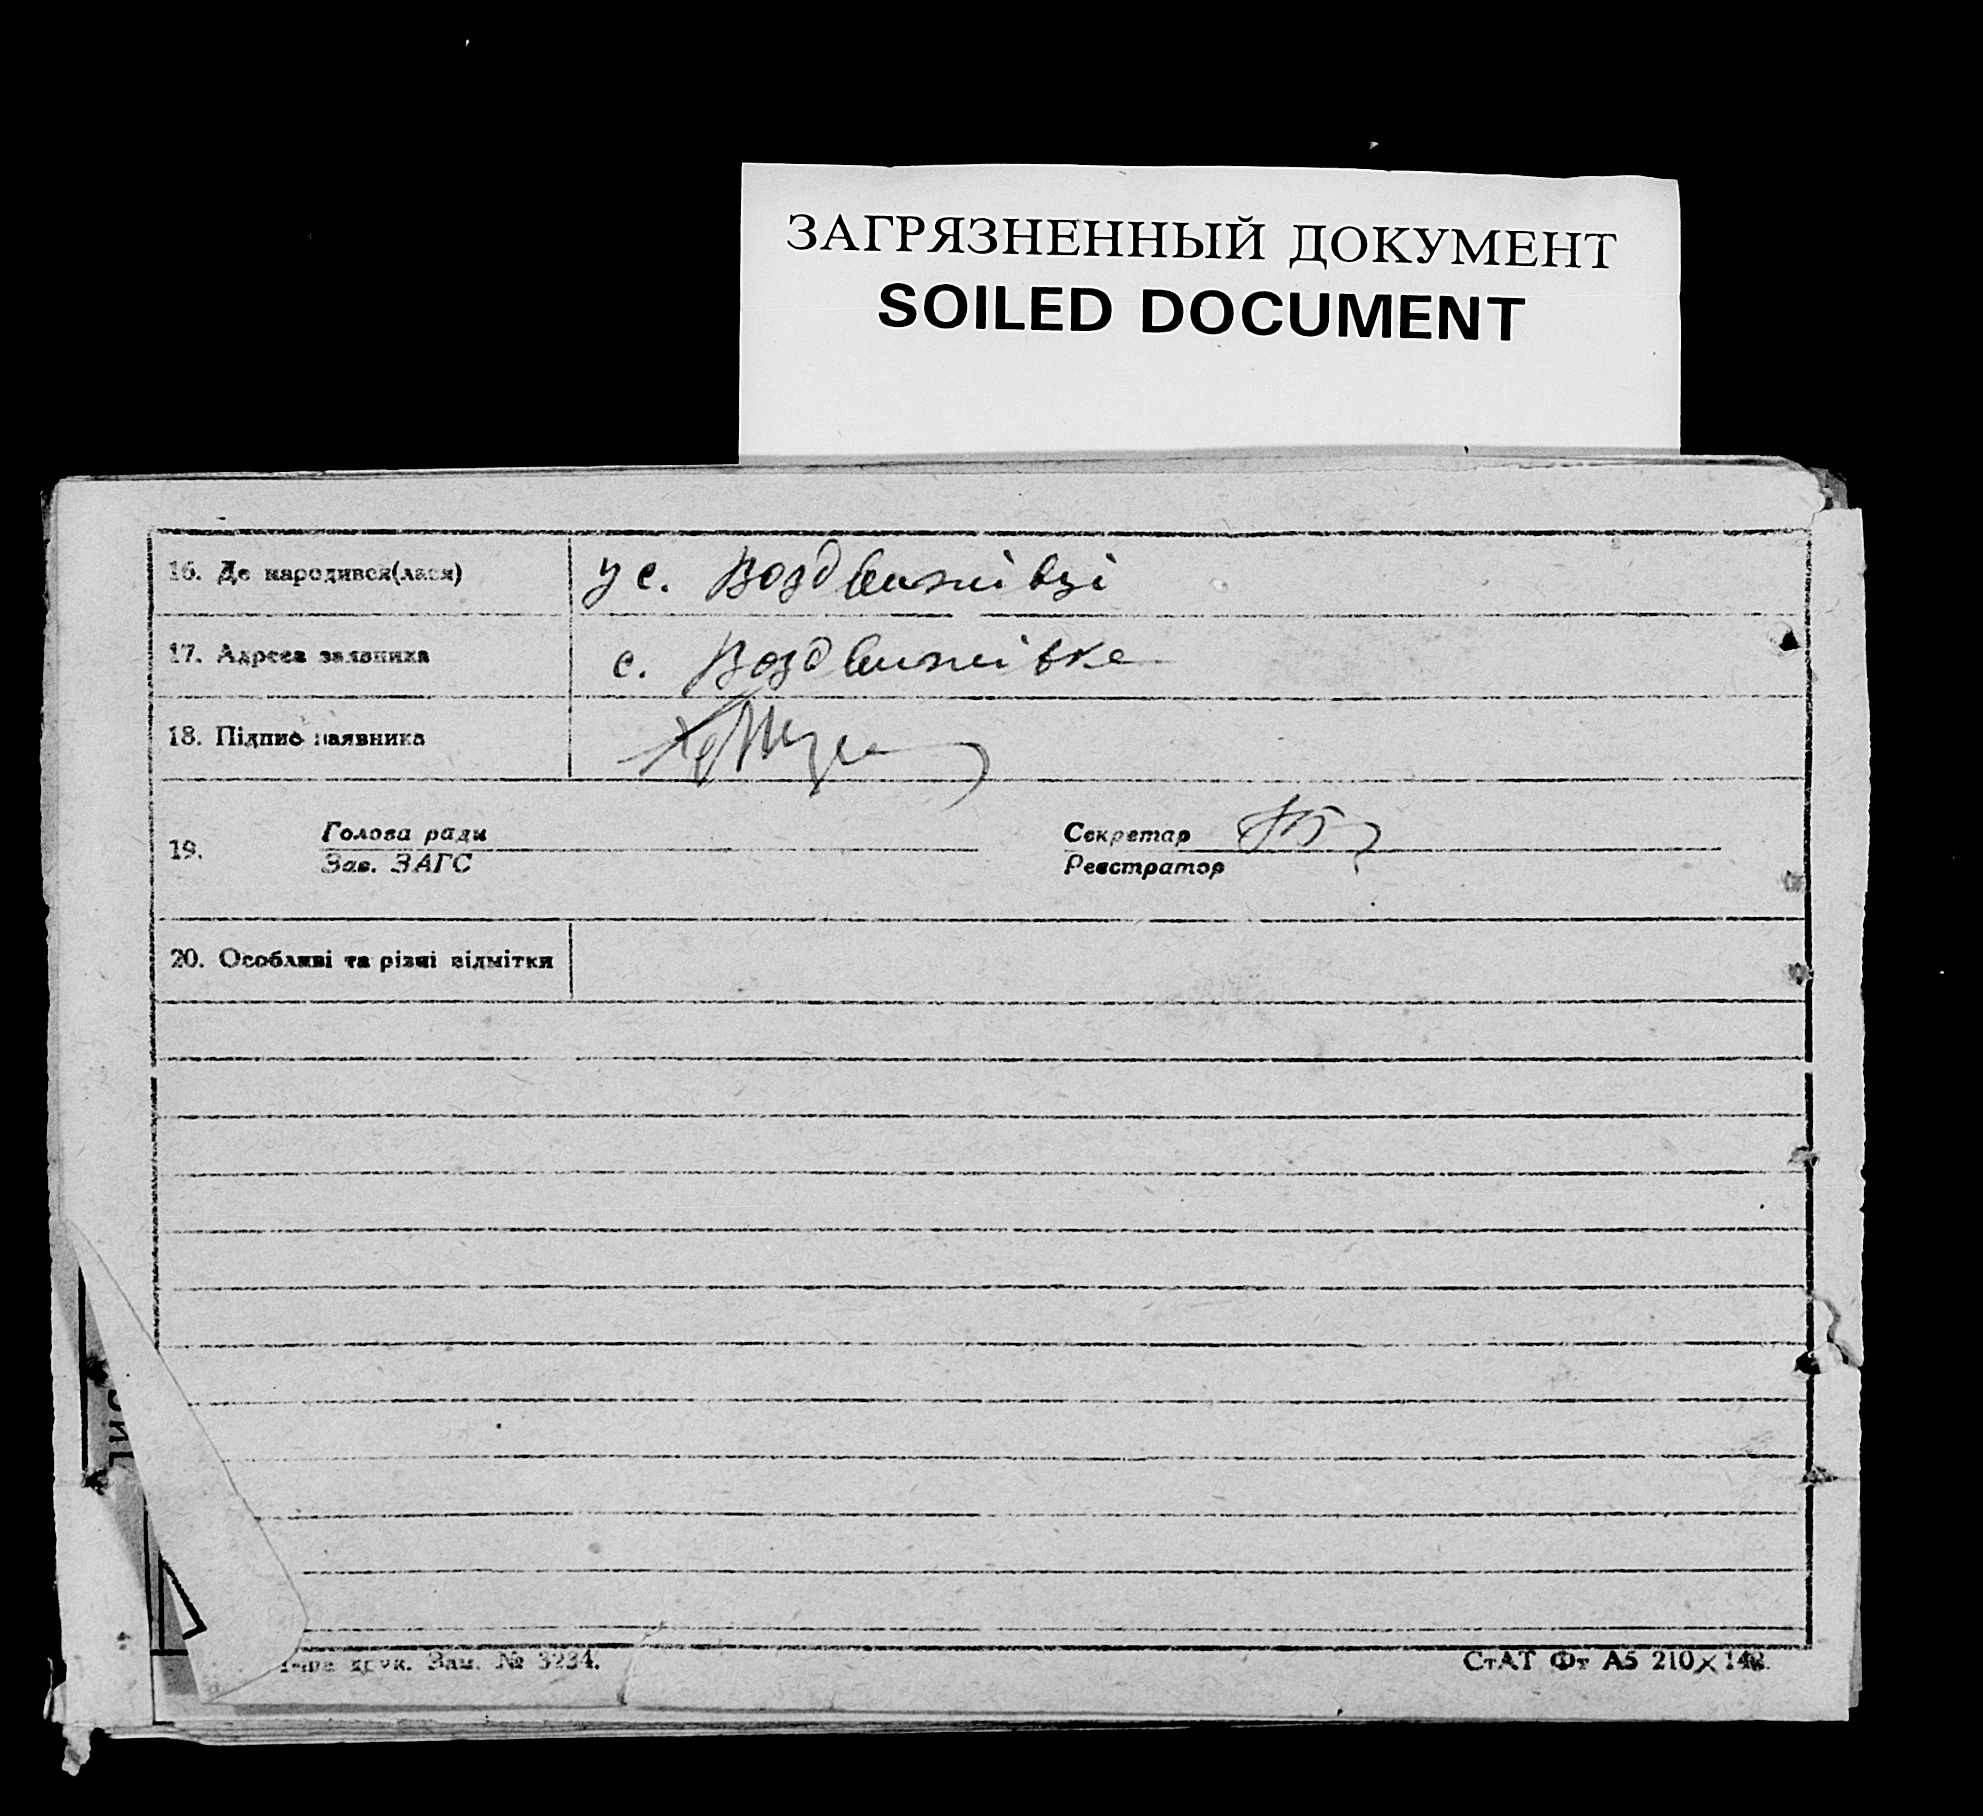 ЗАГРЯЗНЕННЫЙ ДОКУМЕНТ
SOILED DOCUMENT
16. Де народився(лася)
у с. Воздвижівці
17. Адреса заявника
с. Воздвижівка
18. Підпис заявника
19.
Голова ради
Зав. ЗАГС
Секретар
Реєстратор
20. Особливі та різні відмітки
друк. Зам. № 3234.
СтАТ Фт А5 210×148.